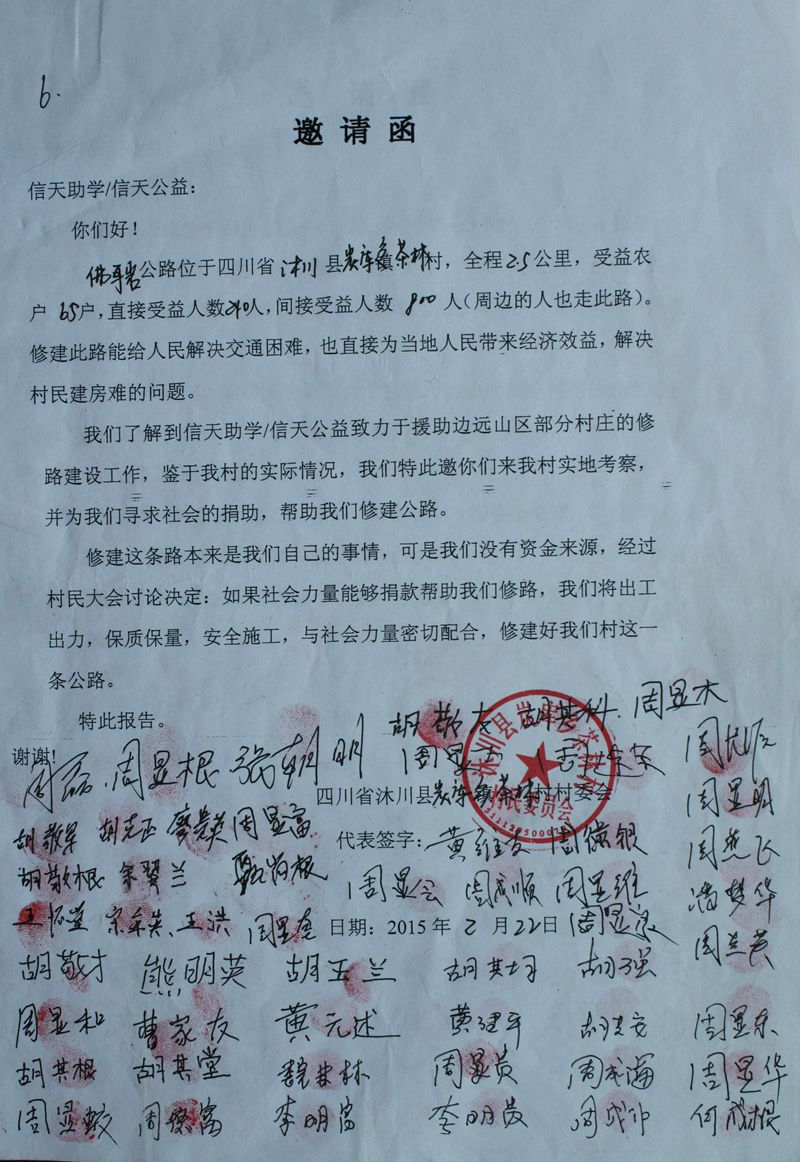 6.
邀请函
信天助学/信天公益：
你们好！
佛耳岩公路位于四川省沐川县炭库镇茶林村，全程2.5公里，受益农
户65户，直接受益人数240人，间接受益人数 800 人（周边的人也走此路）。
修建此路能给人民解决交通困难，也直接为当地人民带来经济效益，解决
村民建房难的问题。
我们了解到信天助学/信天公益致力于援助边远山区部分村庄的修
路建设工作，鉴于我村的实际情况，我们特此邀你们来我村实地考察，
并为我们寻求社会的捐助，帮助我们修建公路。
修建这条路本来是我们自己的事情，可是我们没有资金来源，经过
村民大会讨论决定：如果社会力量能够捐款帮助我们修路，我们将出工
出力，保质保量，安全施工，与社会力量密切配合，修建好我们村这一
条公路。
特此报告。
胡敬 胡其科 周显木
谢谢！
周磊 周显根 张朝明 周显
四川省沐川县炭库镇茶林村村委会 周显明
胡敬军 胡克正 廖贵英 周显富 代表签字： 黄维 周俊银
胡敬根 兰 根 周显会 周成顺 周显维 华
王怀 王洪 周显 日期：2015年2月22日 周显 周 英
胡敬才 熊明英 胡玉兰 胡其 胡 强
周显和 曹家友 黄元述 黄建平 周显东
胡其根 胡其堂 魏林 周显贵 周成海 周显华
周显蛟 周 富 李明富 李明贵 周成 何成根